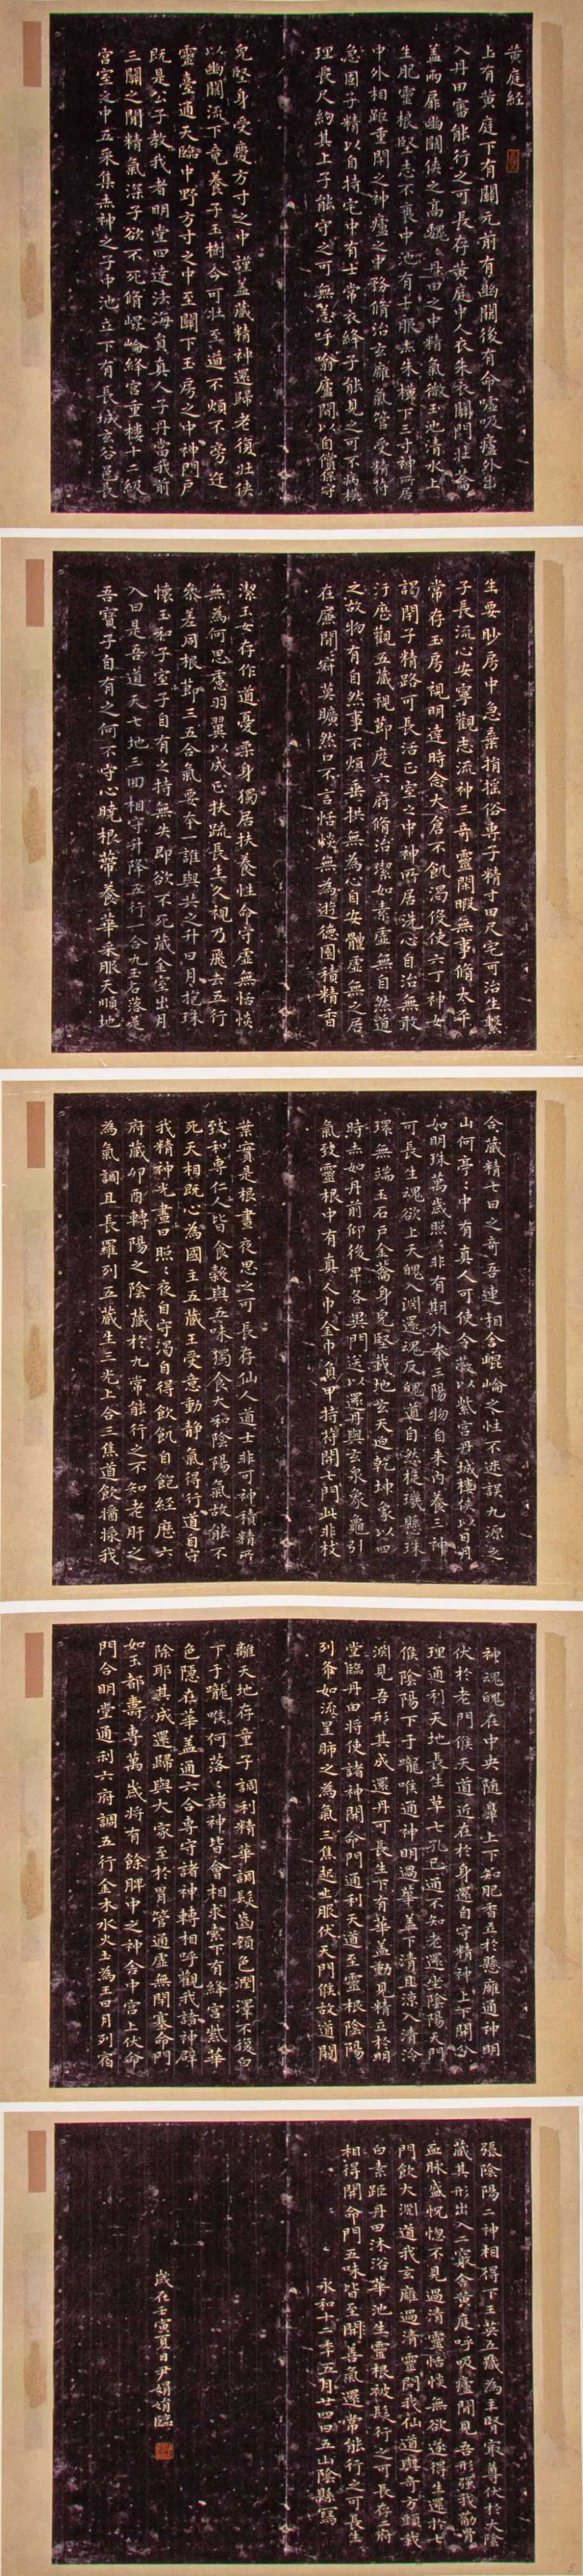 黄庭經
上有黄庭下有關元前有幽闕後有命噓吸廬外出
入丹田審能行之可長存黄庭中人衣朱衣關門壯蘥
盖兩扉幽闕俠之高巍巍丹田之中精氣微玉池清水上
生肥靈根堅志不衰中池有士服赤朱橫下三寸神所居
中外相距重閇之神廬之中務脩治玄廱氣管受精符
急固子精以自持宅中有士常衣絳子能見之可不病橫
理長尺約其上子能守之可無恙呼噏廬間以自償保守
皃堅身受慶方寸之中謹盖藏精神還歸老復壯俠
以幽闕流下竟養子玉樹令可壯至道不煩不旁迕
靈臺通天臨中野方寸之中至關下玉房之中神門戶
既是公子教我者明堂四達法海員真人子丹當我前
三關之間精氣深子欲不死脩崐崘絳宮重樓十二級
宮室之中五采集赤神之子中池立下有長城玄谷邑長
生要眇房中急棄捐搖俗專子精寸田尺宅可治生繫
子長流心安寧觀志流神三奇靈閑暇無事脩太平
常存玉房視明達時念大倉不飢渴役使六丁神女
謁閇子精路可長活正室之中神所居洗心自治無敢
汙歷觀五藏視節度六府脩治潔如素虛無自然道
之故物有自然事不煩垂拱無為心自安體虛無之居
在廉間寂莫曠然口不言恬惔無為遊德園積精香
潔玉女存作道憂柔身獨居扶養性命守虛無恬惔
無為何思慮羽翼以成正扶疏長生久視乃飛去五行
叅差同根節三五合氣要本一誰與共之升日月抱珠
懷玉和子室子自有之持無失即欲不死藏金室出月
入日是吾道天七地三回相守升降五行一合九玉石落落是
吾寶子自有之何不守心曉根蔕養華采服天順地
合藏精七日之奇吾連相合崐崘之性不迷誤九源之
山何亭亭中有真人可使令蔽以紫宮丹城樓俠以日月
如明珠萬歲照照非有期外本三陽物自来内養三神
可長生魂欲上天魄入淵還魂反魄道自然旋璣懸珠
環無端玉石戶金蘥身皃堅載地玄天迫乾坤象以四
時赤如丹前仰後卑各異門送以還丹與玄泉象龜引
氣致靈根中有真人巾金巾負甲持苻開七門此非枝
葉實是根晝夜思之可長存仙人道士非可神積精所
致和專仁人皆食榖與五味獨食大和陰陽氣故能不
死天相既心為國主五藏王受意動靜氣得行道自守
我精神光晝日照照夜自守渴自得飲飢自飽經歷六
府藏卯酉轉陽之陰藏於九常能行之不知老肝之
為氣調且長羅列五藏生三光上合三焦道飲醬漿我
神魂魄在中央隨鼻上下知肥香立於懸廱通神明
伏於老門候天道近在於身還自守精神上下開分
理通利天地長生草七孔已通不知老還坐陰陽天門
候陰陽下于嚨喉通神明過華盖下清且涼入清泠
淵見吾形其成還丹可長生下有華盖動見精立於明
堂臨丹田將使諸神開命門通利天道至靈根陰陽
列布如流星肺之為氣三焦起上服伏天門候故道闚
離天地存童子調利精華調髮齒顏色潤澤不復白
下于嚨喉何落落諸神皆會相求索下有絳宮紫華
色隱在華盖通六合專守諸神轉相呼觀我諸神辟
除耶其成還歸與大家至於胃管通虛無閇塞命門
如玉都壽專萬歲將有餘脾中之神舍中宮上伏命
門合明堂通利六府調五行金木水火土為王日月列宿
張陰陽二神相得下玉英五藏為主腎冣尊伏於大陰
藏其形出入二竅舍黃庭呼吸廬間見吾形強我筋骨
血脉盛怳惚不見過清靈恬惔無欲遂得生還於七
門飲大淵道我玄廱過清靈問我仙道與奇方頭載
白素距丹田沐浴華池生靈根被髮行之可長存二府
相得開命門五味皆至開善氣還常能行之可長生
永和十二年五月廿四日五山陰縣寫
歲在壬寅夏日尹娟娟臨